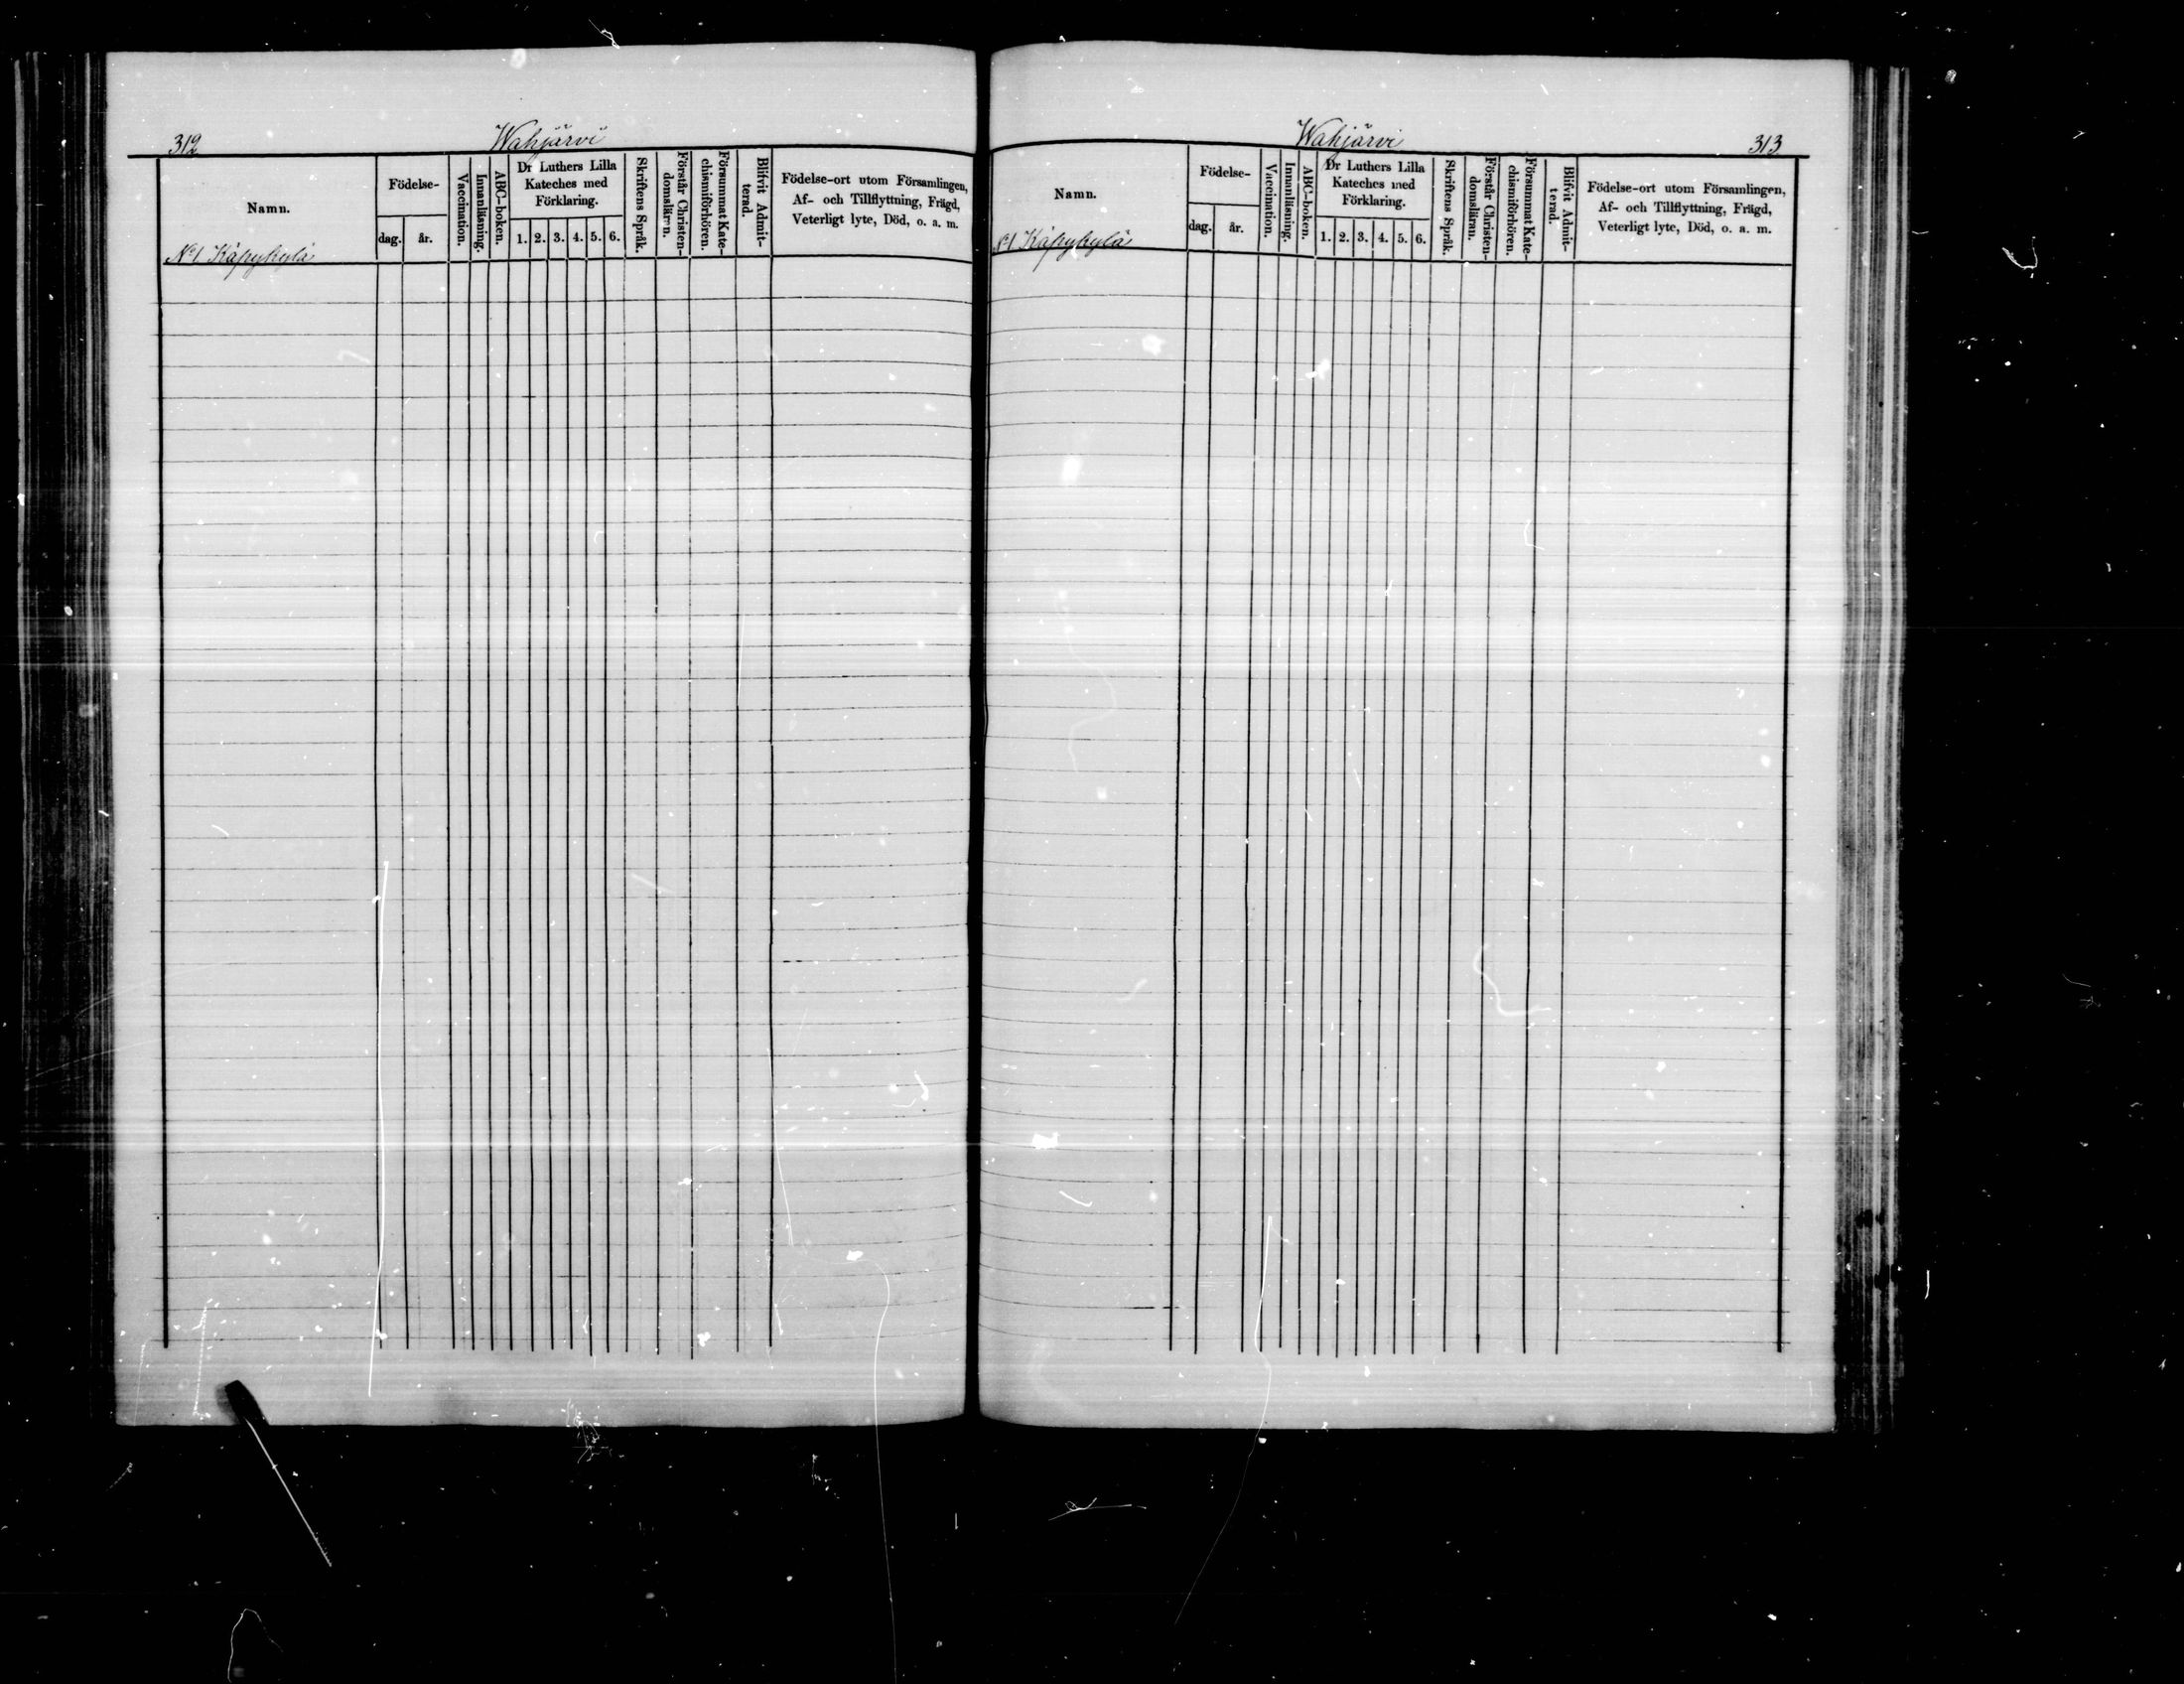 312
Wahjärvi
Namn.
Födelse-
dag.
år.
Vaccination.
Innanläsning.
ABC-boken.
Dr Luthers Lilla
Kateches med
Förklaring.
1. 2. 3. 4. 5. 6.
Skriftens Språk.
Förstår Christen-
domsläran.
Försummat Kate-
chismiförhören.
Blifvit Admit-
terad.
Födelse-ort utom Församlingen,
Af- och Tillflyttning, Frägd,
Veterligt lyte, Död, o. a. m.
No 1 Käpykylä
Wahjärvi
313
Namn.
Födelse-
dag.
år.
Vaccination.
Innanläsning.
ABC-boken.
Dr Luthers Lilla
Kateches med
Förklaring.
1. 2. 3. 4. 5. 6.
Skriftens Språk.
Förstår Christen-
domsläran.
Försummat Kate-
chismiförhören.
Blifvit Admit-
terad.
Födelse-ort utom Församlingen,
Af- och Tillflyttning, Frägd,
Veterligt lyte, Död, o. a. m.
No 1 Käpykylä